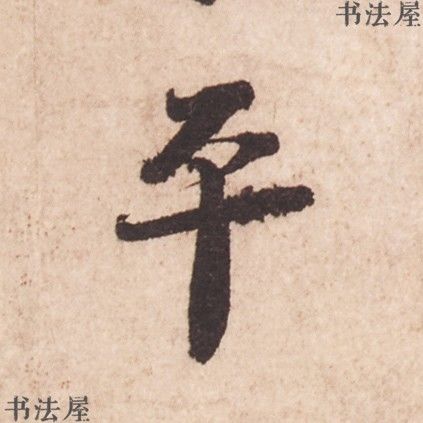 书法屋
平
书法屋